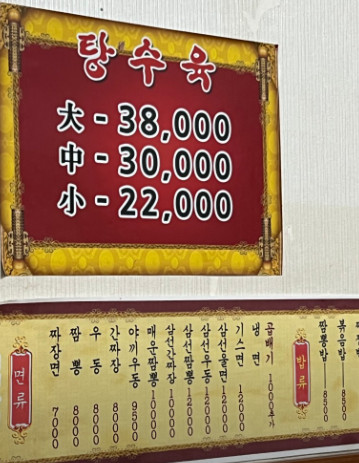 탕수육
大 - 38,000
中 - 30,000
小 - 22,000
면류
짜장면 7000
짬뽕 8000
우동 8000
간짜장 8000
야끼우동 9500
매운짬뽕 10000
삼선간짜장 10000
삼선짬뽕 12000
삼선우동 12000
삼선울면 12000
기스면 12000
냉면
곱배기 1000추가
밥류
짬뽕밥 8500
볶음밥 8500